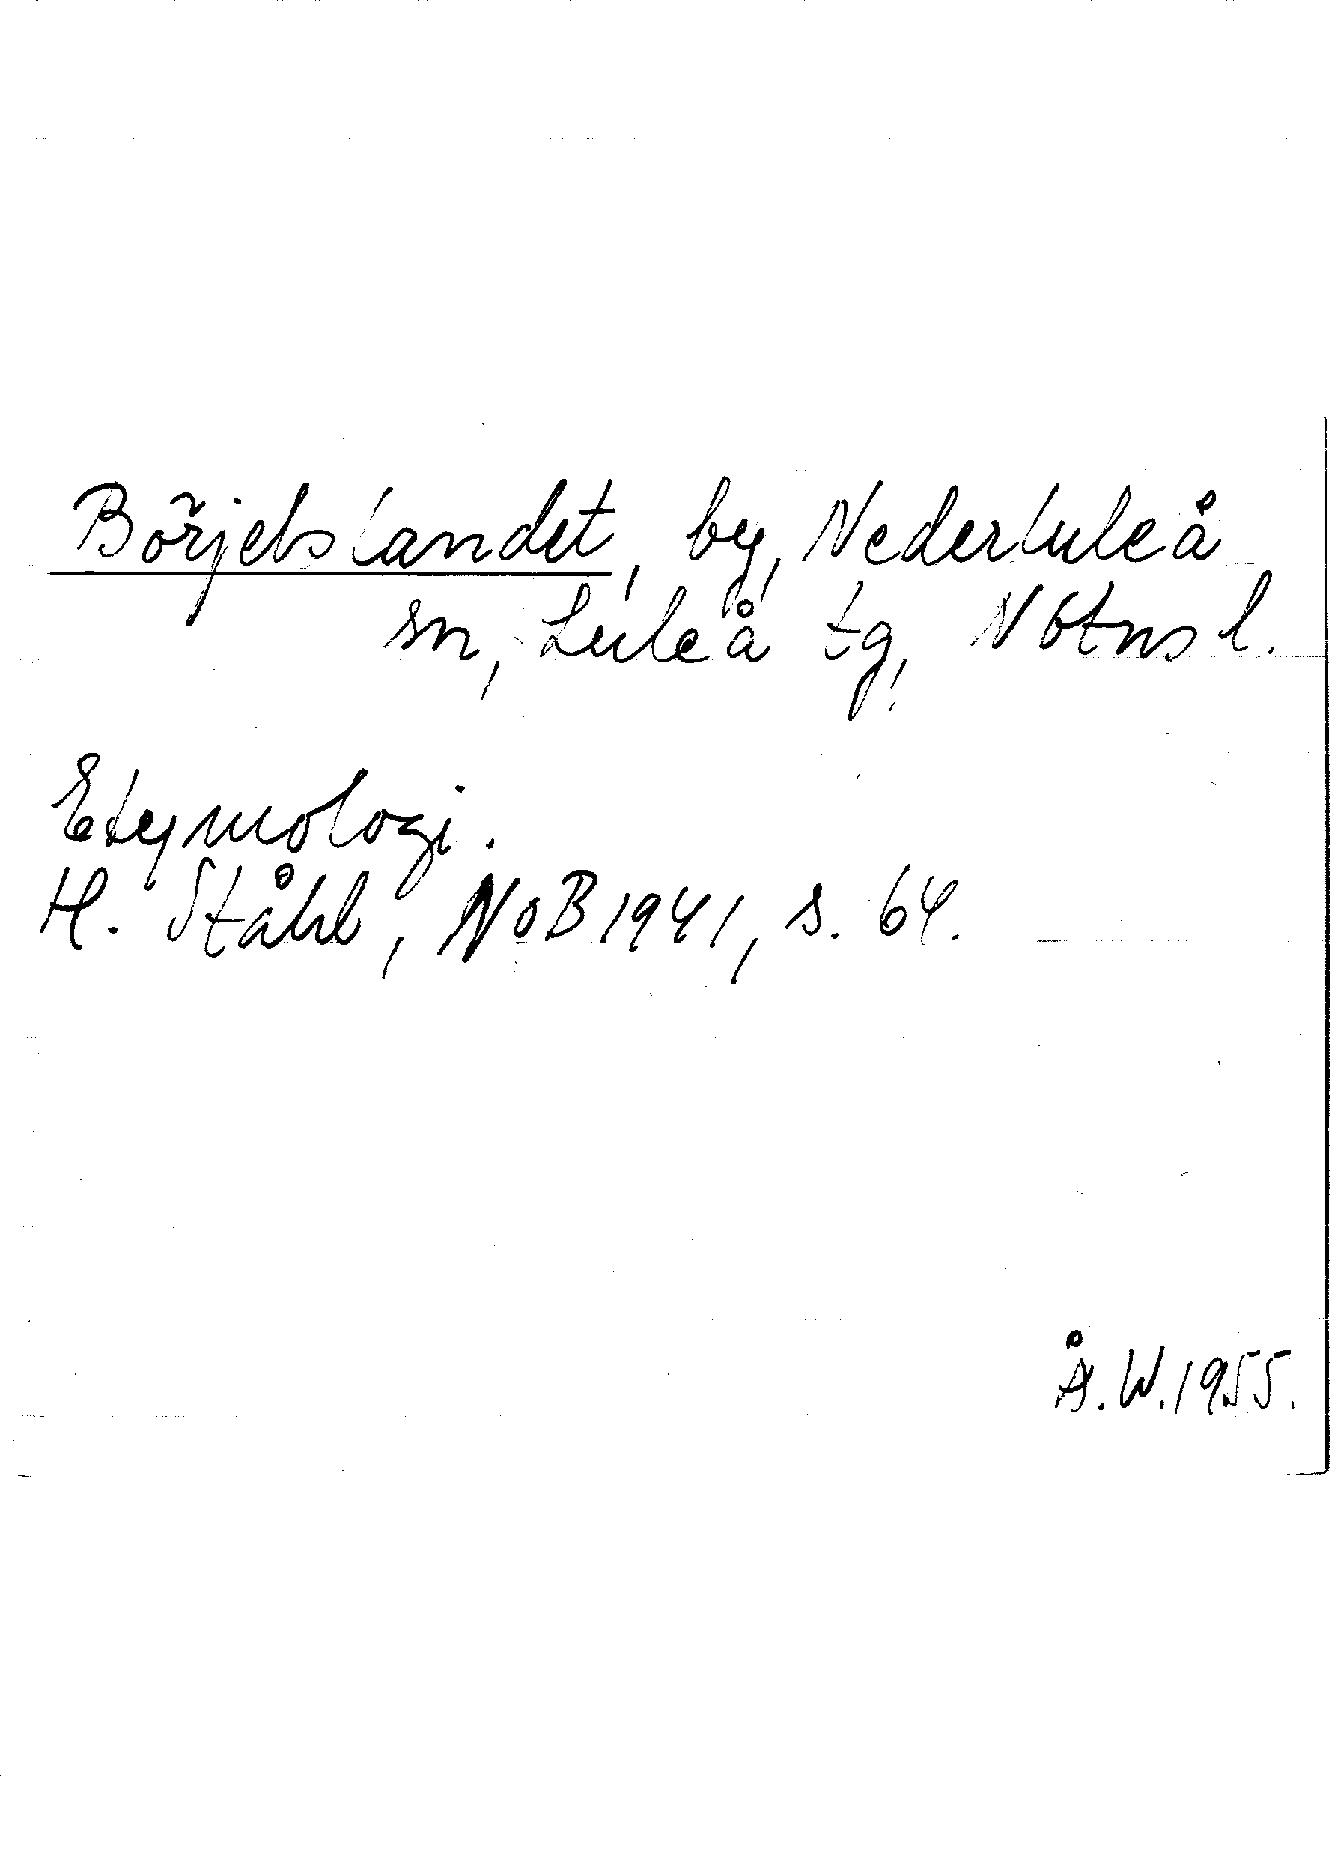 Börjelslandet, by, Nederluleå
sn, Luleå tg, Nbtns l.
Etymologi.
H. Ståhl, NoB 1941, s. 64.
Å.W.1955.